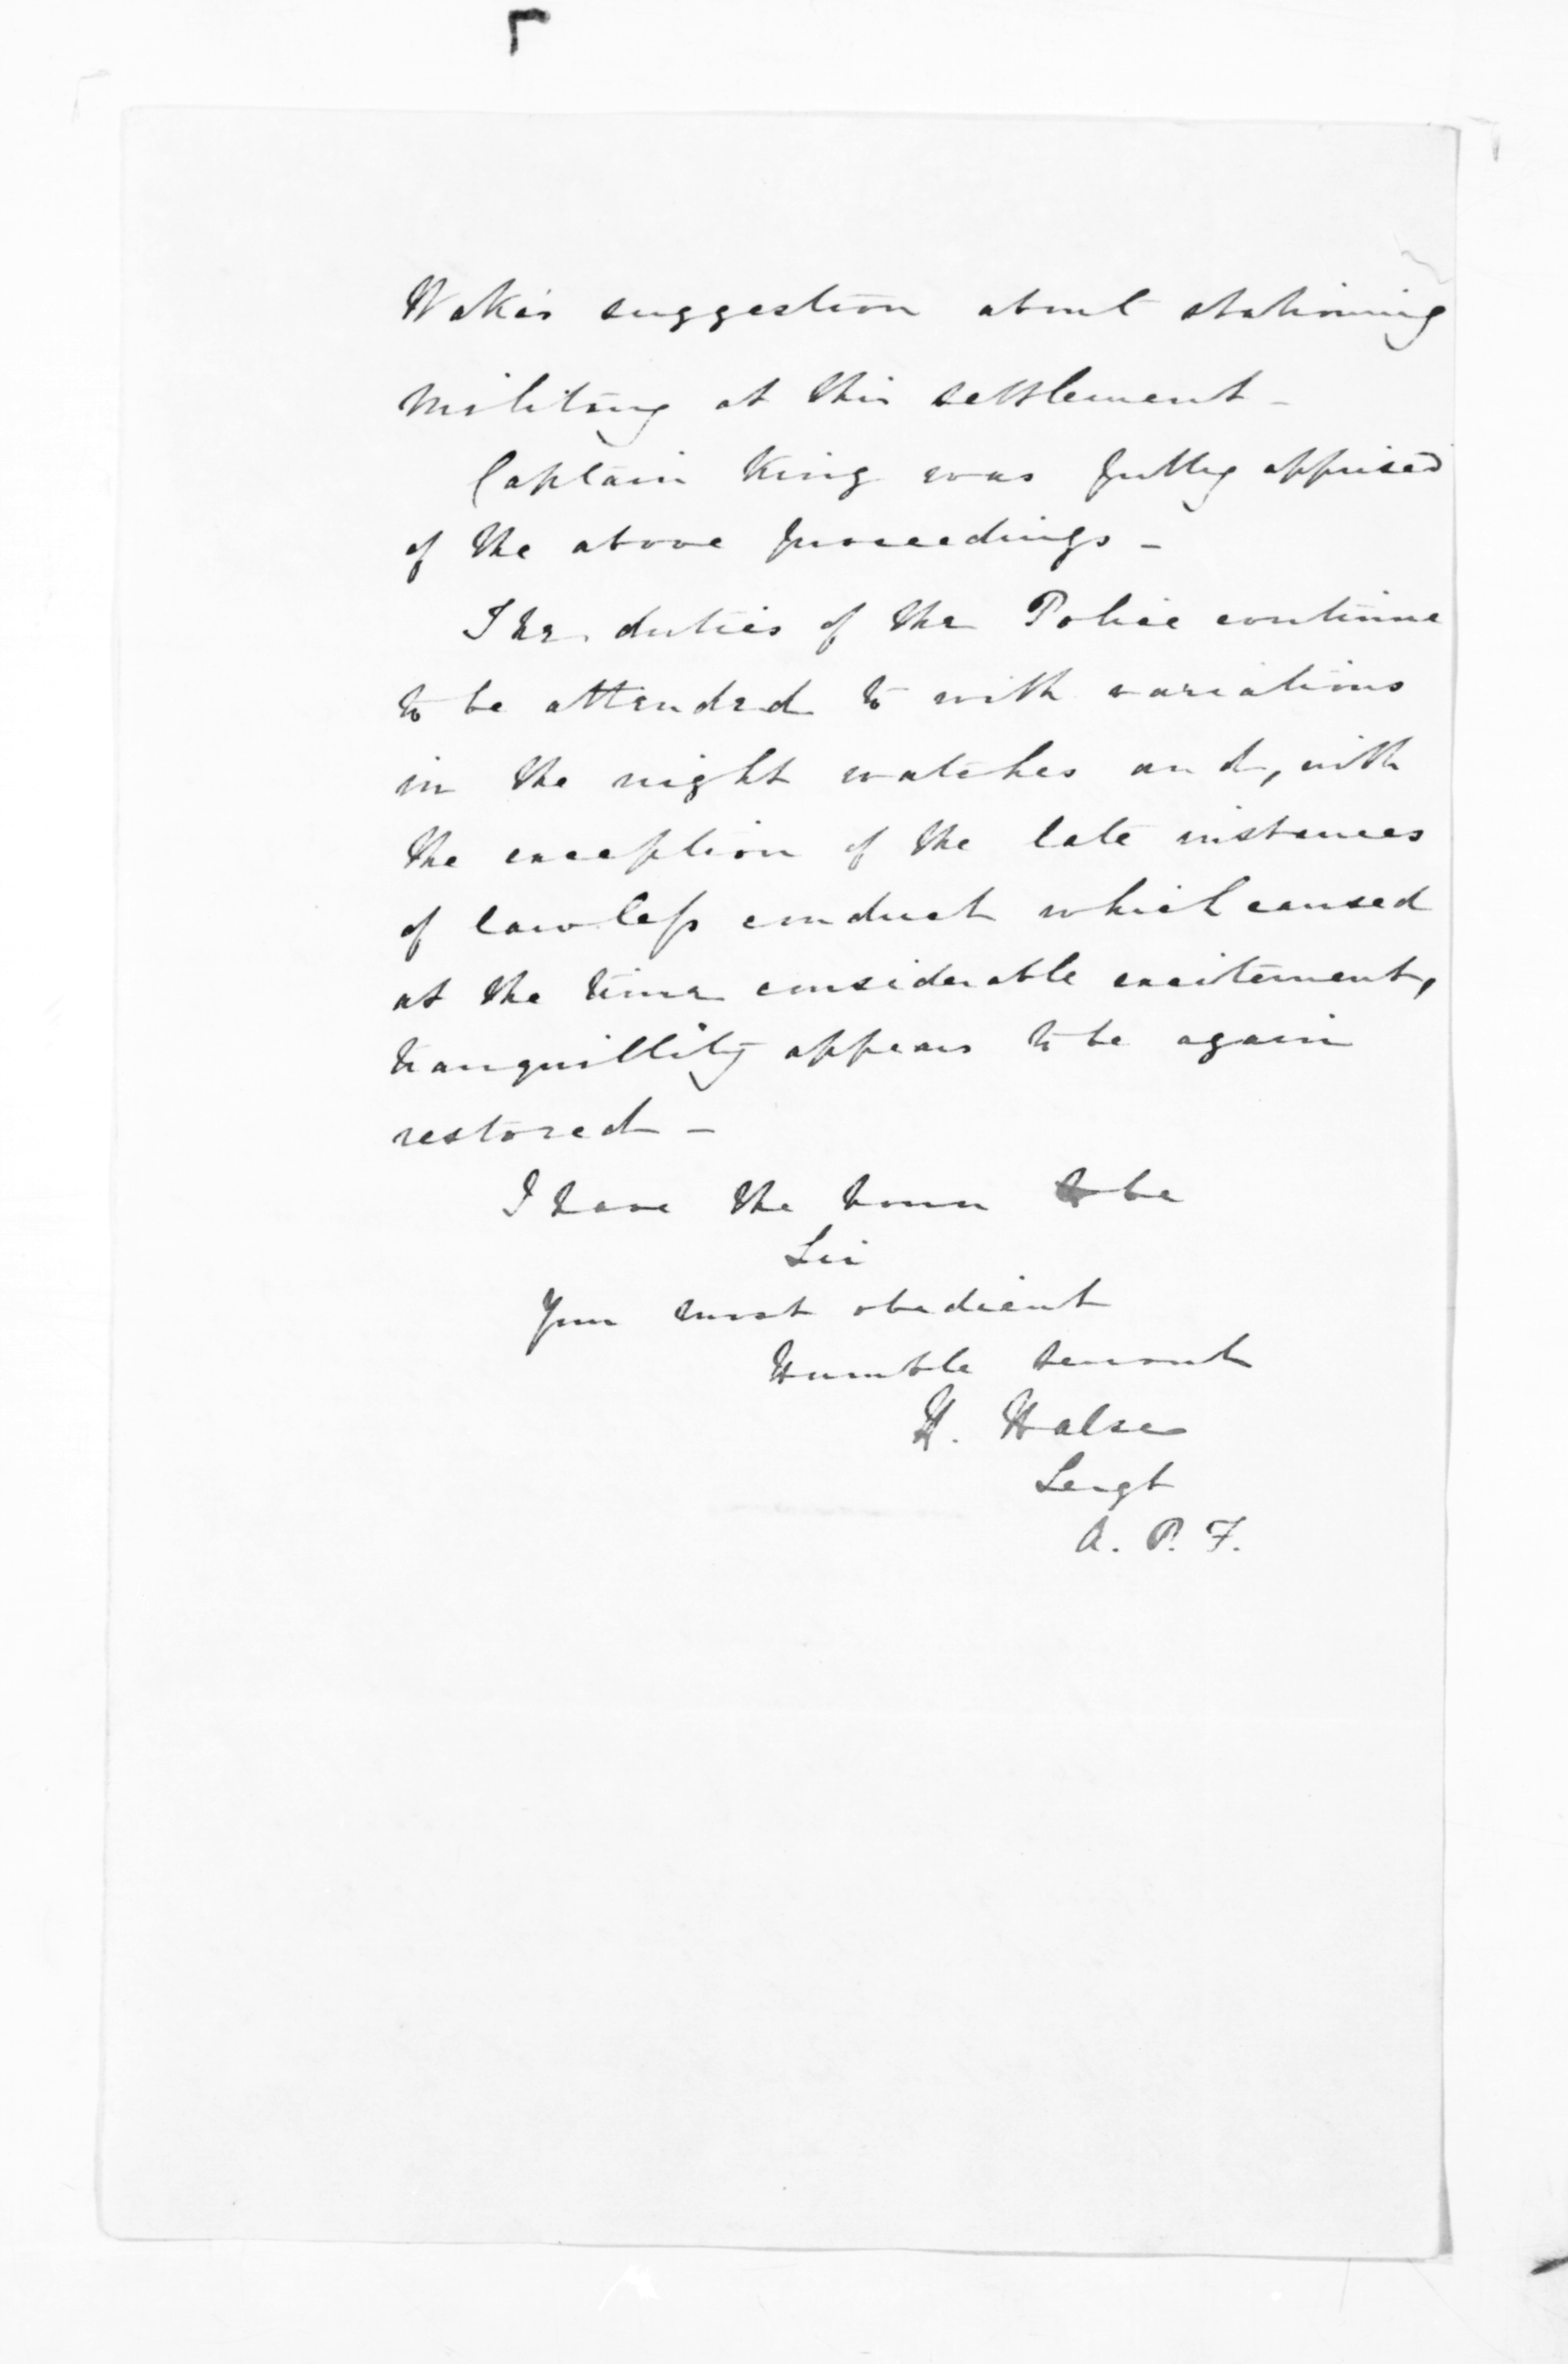 Wakis suggestion about stationing
military at this settlement -
Captain King was fully apprised
of the above proceedings -
The duties of the Police continue
to be attended to with variations
in the night watches and, with
the exception of the late instances
of lawless conduct which caused
at the time considerable excitement,
tranquillity appears to be again
restored -
I have the honor to be
Sir
Your most obedient
Humble servant
H. Halse
Sergt
A. P. F.